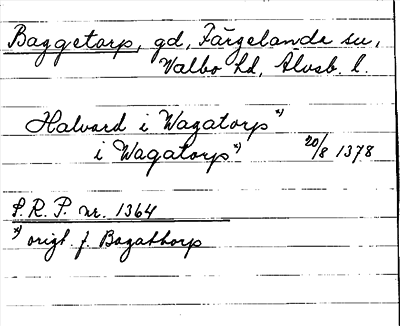 Baggetorp, gd, Färgelanda sn,
Valbo hd, Älvsb. l.
Halvard i Wagatorp *)
i Wagatorp *) 20/8 1378
S.R.P. nr. 1364
*) origl. f. Bagathorp